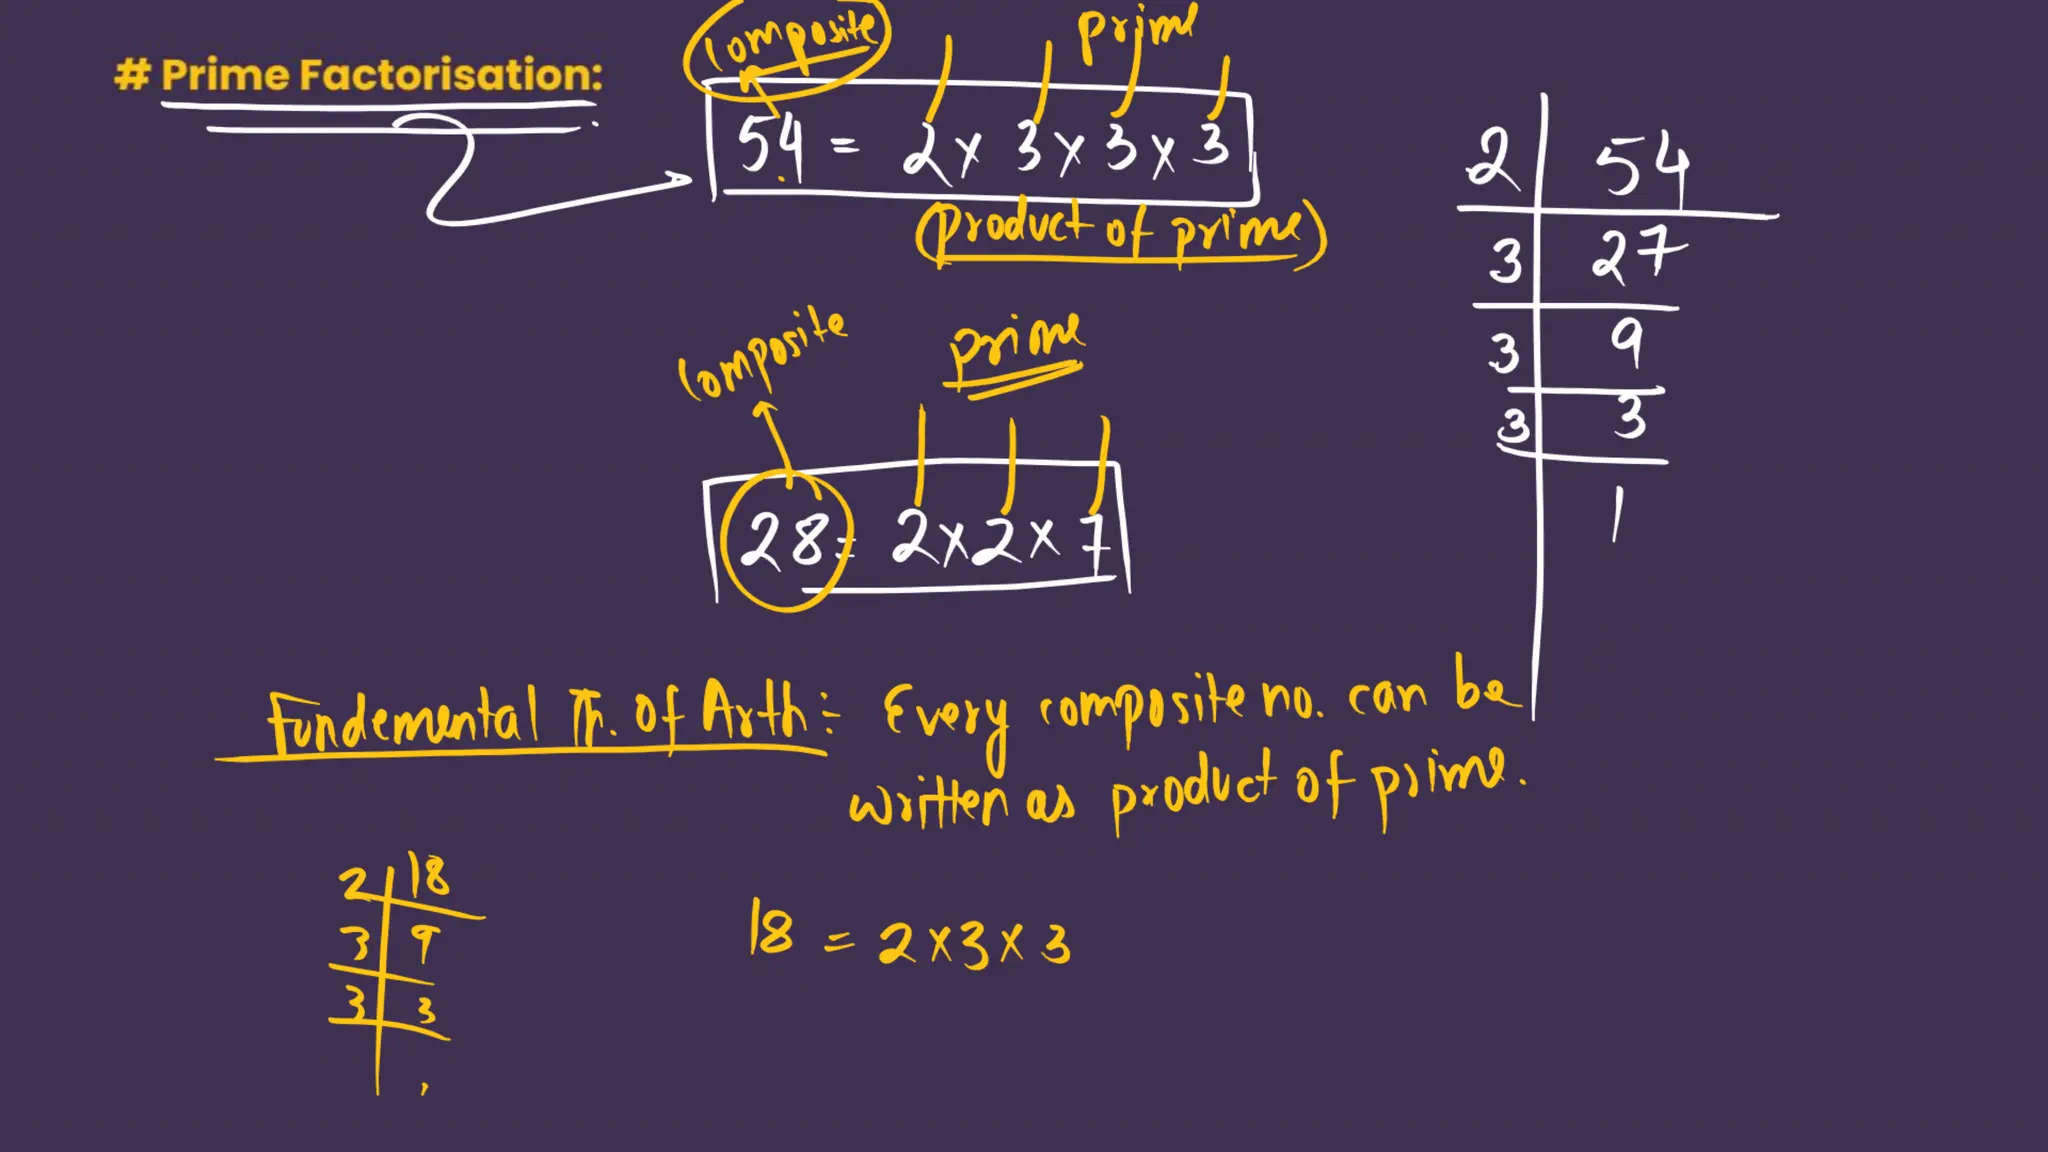 # Prime Factorisation:
composite
prime
54 = 2 × 3 × 3 × 3
(product of prime)
2 | 54
3 | 27
3 | 9
3 | 3
1
composite
prime
28 = 2 × 2 × 7
Fundemental Th. Of Arth :- Every composite no. can be
written as product of prime.
2 | 18
3 | 9
3 | 3
18 = 2 × 3 × 3